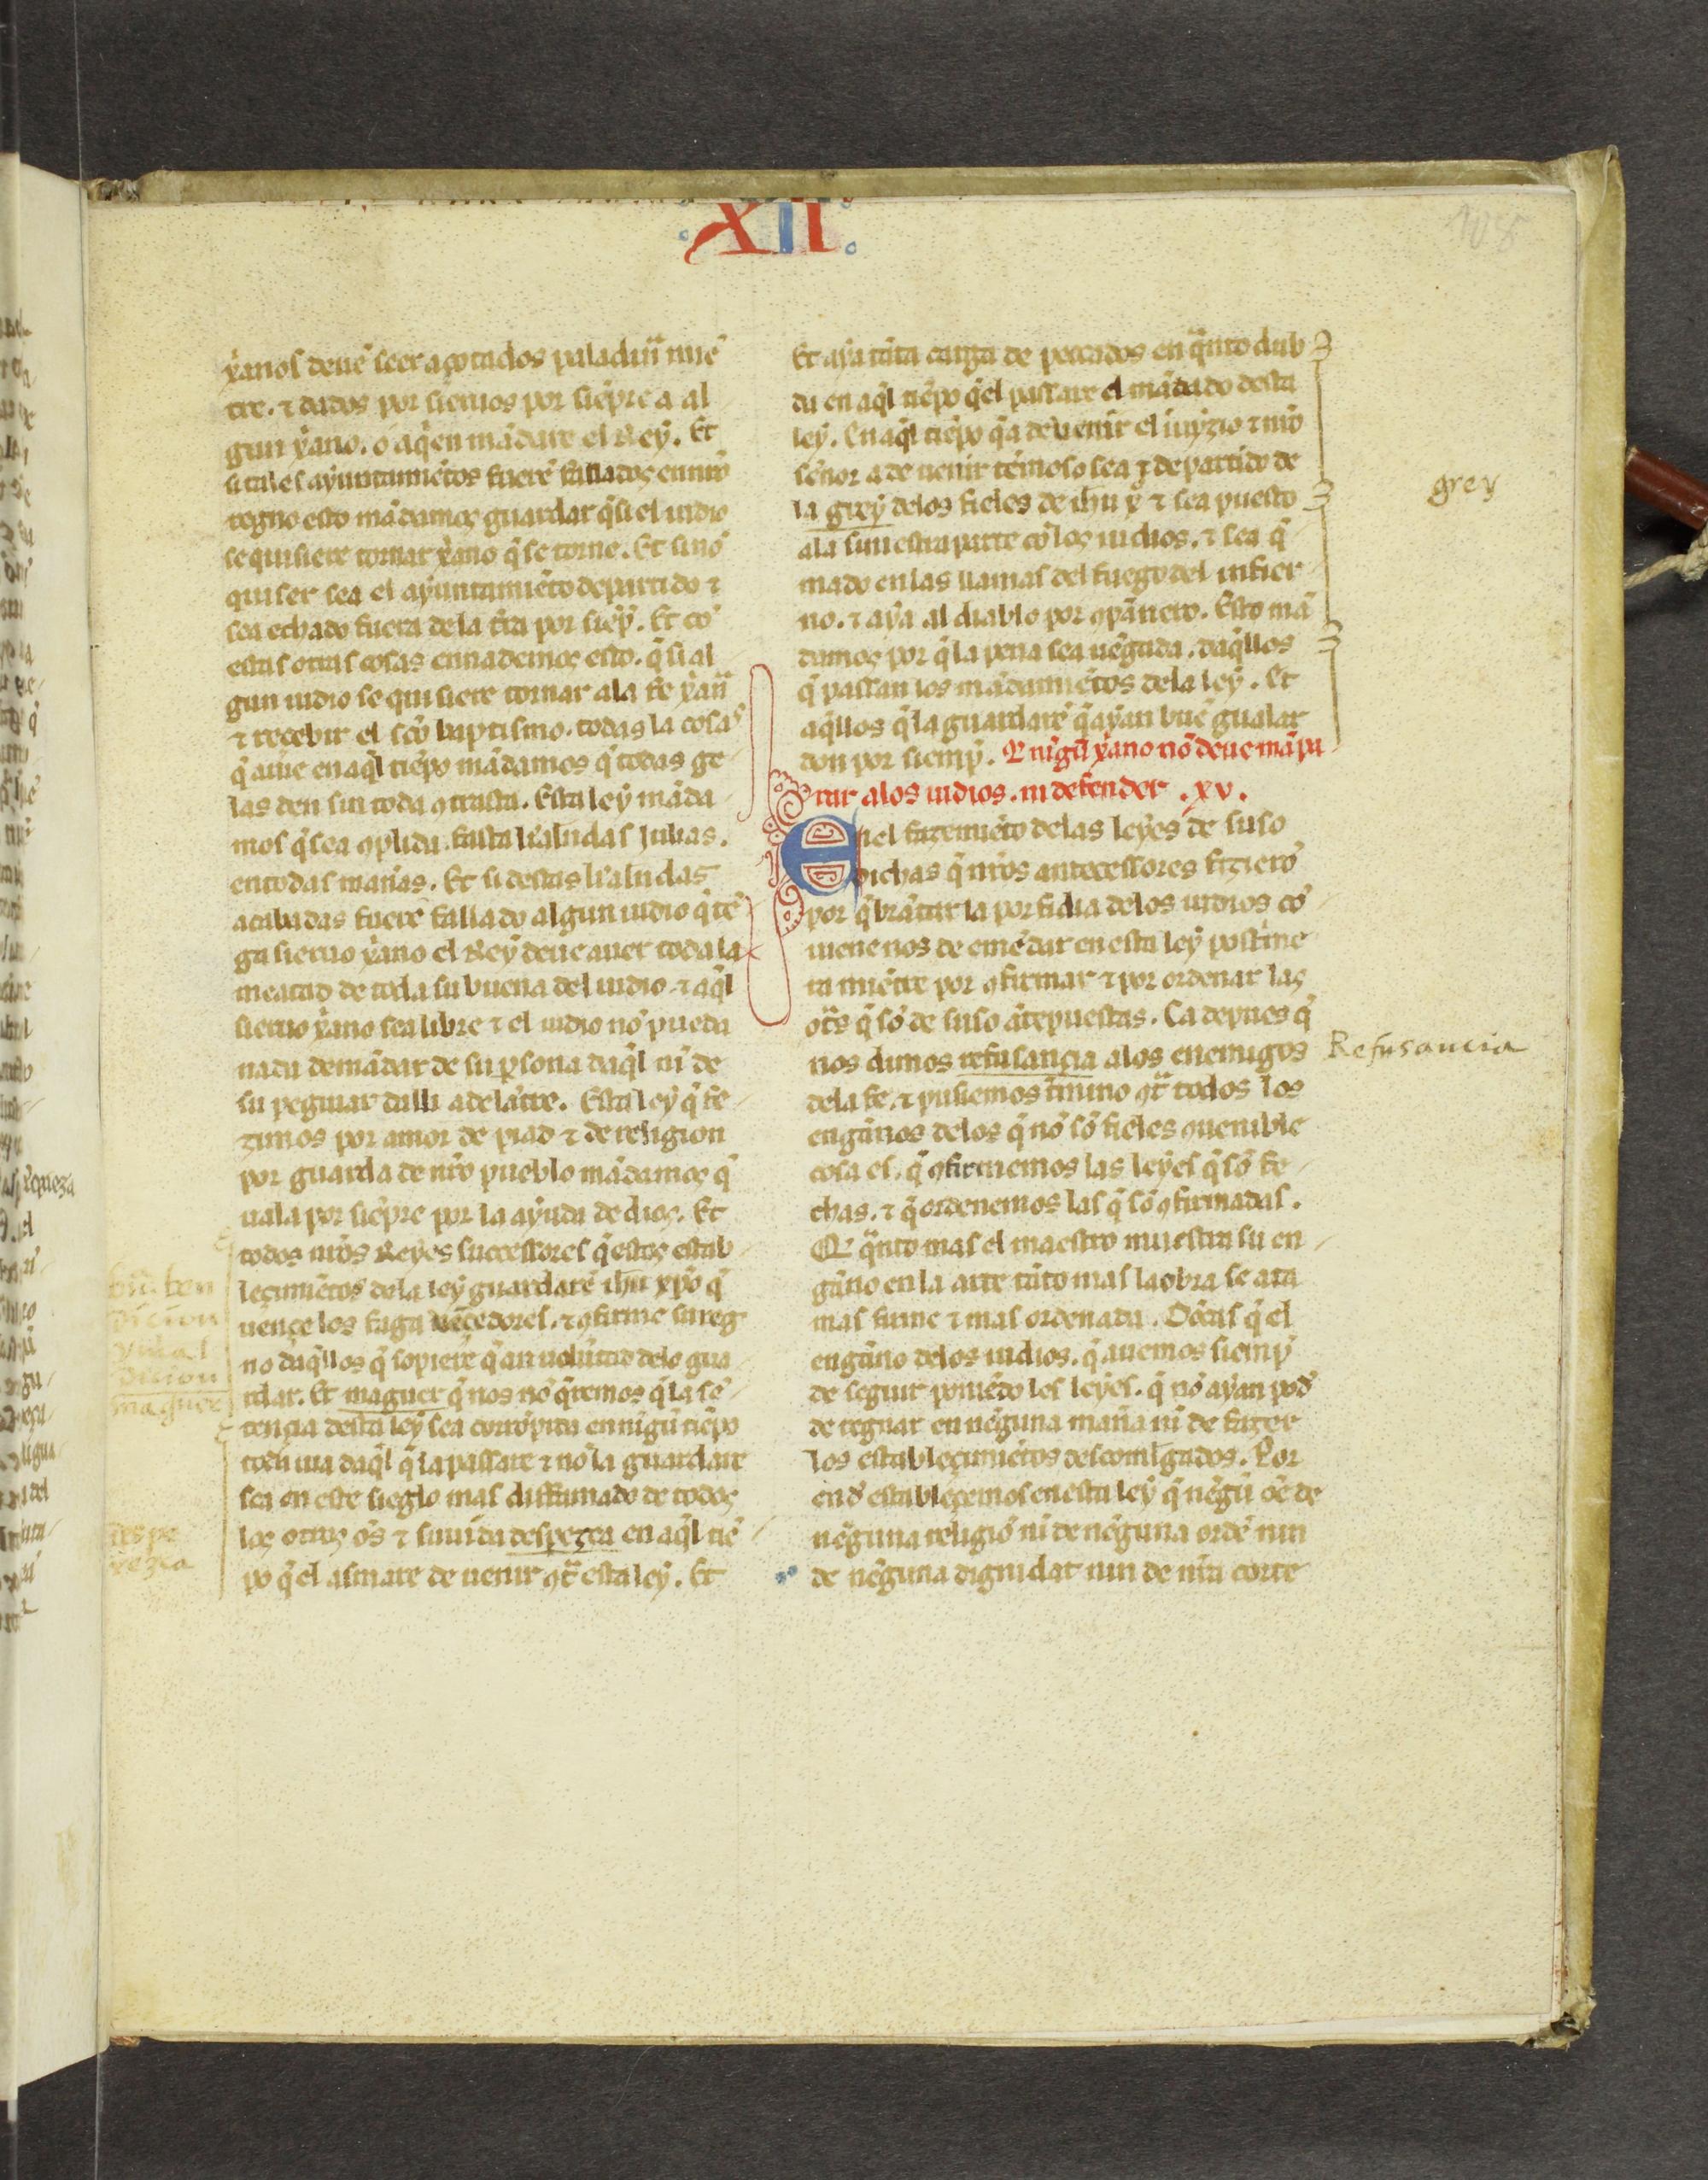 XII
108
x̃anos deuẽ seer açotados paladin̄ miẽ
tre. ⁊ dados por sieruos por siẽpre a al
gun x̃ano. o a q̃en mãdare el Rey. Et
si tales ayuntamiẽtos fuerẽ fallados en nr̃o
regno esto mãdamos guardar q̃ si el iudio
se quisiere tornar x̃ano q̃ se torne. Et si nõ
quiser sea el ayuntamiẽto departido ⁊
sea echado fuera de la tr̃a por siẽp̃. Et cõ
estas otras cosas ennademos esto. q̃ si al
gun iudio se quisiere tornar a la fe x̃an̄
⁊ recebir el sc̃o baptismo. todas la cosas
q̃ auie en aq̃l tiẽpo mãdamos q̃ todas ge
las den sin toda ꝯtrasta. Esta ley mãda
mos q̃ sea ꝯplida fasta l'as kalẽdas Julias.
en todas marias. Et si destas kalẽdas
acabadas fuerẽ fallado algun iudio q̃ tẽ
ga sieruo x̃ano el Rey deue auer toda la
meatad de toda su buena del iudio ⁊ aq̃l
sieruo x̃ano sea libre ⁊ el iudio nõ pueda
nada demãdar de su ꝑsona daq̃l ni de
su peguiar dalli adelãtre. Esta ley q̃ fe
zimos por amor de piad ⁊ de religion
por guarda de nr̃o pueblo mãdamos q̃
uala por siẽpre por la ayuda de dios. Et
todos nr̃os Reyes successores q̃ estos estab
leçimiẽtos de la ley guardarẽ ihu xp̃o q̃
uençe los faga uẽçedores. ⁊ ꝯfirme su reg
no daq̃llos q̃ sopierẽ q̃ an uolũtad de lo gua
rdar. Et maguer q̃ nos nõ q̃remos q̃ la sẽ
tençia desta ley sea corrõpida en nigũ tiẽpo
toda uia daq̃l q̃ la passare ⁊ nõ la guardare
sea en este sieglo mas diffamado de todos
los otros oẽs ⁊ su uida desperezca en aq̃l tiẽ
po q̃ el asmare de uenir ꝯt̃ esta ley. Et
maguer
Et aya tãta carga de peccados en q̃nto dub
da en aq̃l tiẽpo q̃ el passare el mãdado desta
ley. En aq̃l tiẽpo q̃ a de uenir el iuyzio ⁊ nr̃o
señor a de uenir temeroso sea ⁊ departido de
la grey de los fieles de ihu x̃ ⁊ sea puesto
a la siniestra parte cõ los iudios. ⁊ sea q̃
mado en las llamas del fuego del infier
no. ⁊ aya al diablo por ꝯpãnero. Esto mã
damos por q̃ la pena sea uẽgada. daq̃llos
q̃ passan los mãdamiẽtos de la ley. Et
aq̃llos q̃ la guardarẽ q̃ ayan buẽ gualar
don por siemp̃. Q̃ nigũ x̃ano nõ deue mãpa
rar a los iudios. ni defender. .xv.
Enel fazemiẽto de las leyes de suso
dichas q̃ nr̃os antecessores fizierõ
por q̃brãtar la porfidia de los iudios cõ
uiene nos de emẽdar en esta ley postrime
ra miẽtre por ꝯfirmar ⁊ por ordenar las
ot̃s q̃ sõ de suso ãtepuestas. Ca depues q̃
nos dimos refusançia a los enemigos
de la fe. ⁊ pusiemos t̃mino ꝯt̃ todos los
engãnos de los q̃ nõ sõ fieles ꝯuenible
cosa es. q̃ ꝯfirmemos las leyes q̃ sõ fe
chas. ⁊ q̃ ordenemos las q̃ sõ ꝯfirmadas.
Q̃ q̃nto mas el maestro muestra su en
gãno en la arte tãto mas la obra se ata
mas firme ⁊ mas ordenada. Oc̃as q̃ el
engãno de los iudios. q̃ auemos siemp̃
de seguir poniẽdo les leyes. q̃ nõ ayan pod̃
de regnar en nẽguna mar̃a ni de fazer
los estableçimiẽtos descomlgados. Por
end̃ estableçemos en esta ley q̃ nẽgũ oẽ de
nẽguna religiõ ni de nẽguna ordẽ nin
de nẽguna dignidat nin de nr̃a corte
grey
Refusancia